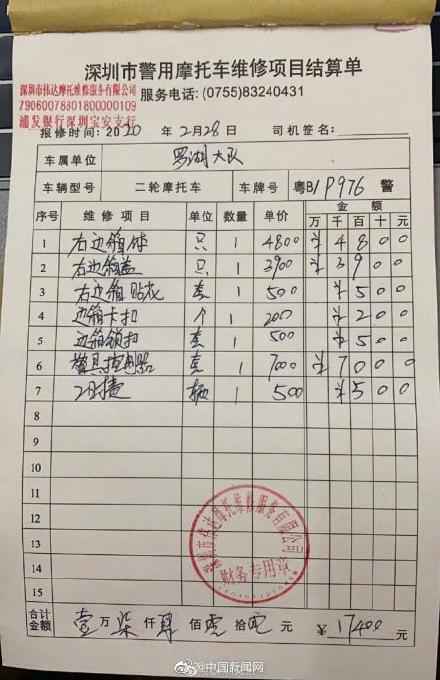 深圳市警用摩托车维修项目结算单
深圳市伟达摩托维修服务有限公司
79060078801800000109
浦发银行深圳宝安支行
服务电话: (0755)83240431
报修时间: 2020 年 2月28日 司机签名:
车属单位 罗湖大队
车辆型号 二轮摩托车 车牌号 粤B/P976 警
序号 维修项目 单位 数量 单价 金额
万 千 百 十 元
1 右边箱体 只 1 4800 ¥ 4 8 0 0
2 右边箱盖 只 1 3900 ¥ 3 9 0 0
3 右边箱贴花 套 1 500 ¥ 5 0 0
4 边箱卡扣 个 1 200 ¥ 2 0 0
5 边箱锁扣 套 1 500 ¥ 5 0 0
6 警具控制器 套 1 7000 ¥ 7 0 0 0
7 工时费 辆 1 500 ¥ 5 0 0
8
9
10
11
12
13
14
15
深圳市伟达摩托维修服务有限公司
财务专用章
合计金额 壹 万 柒 仟 肆 佰 零 拾 零 元 ¥ 17400
@中国新闻网